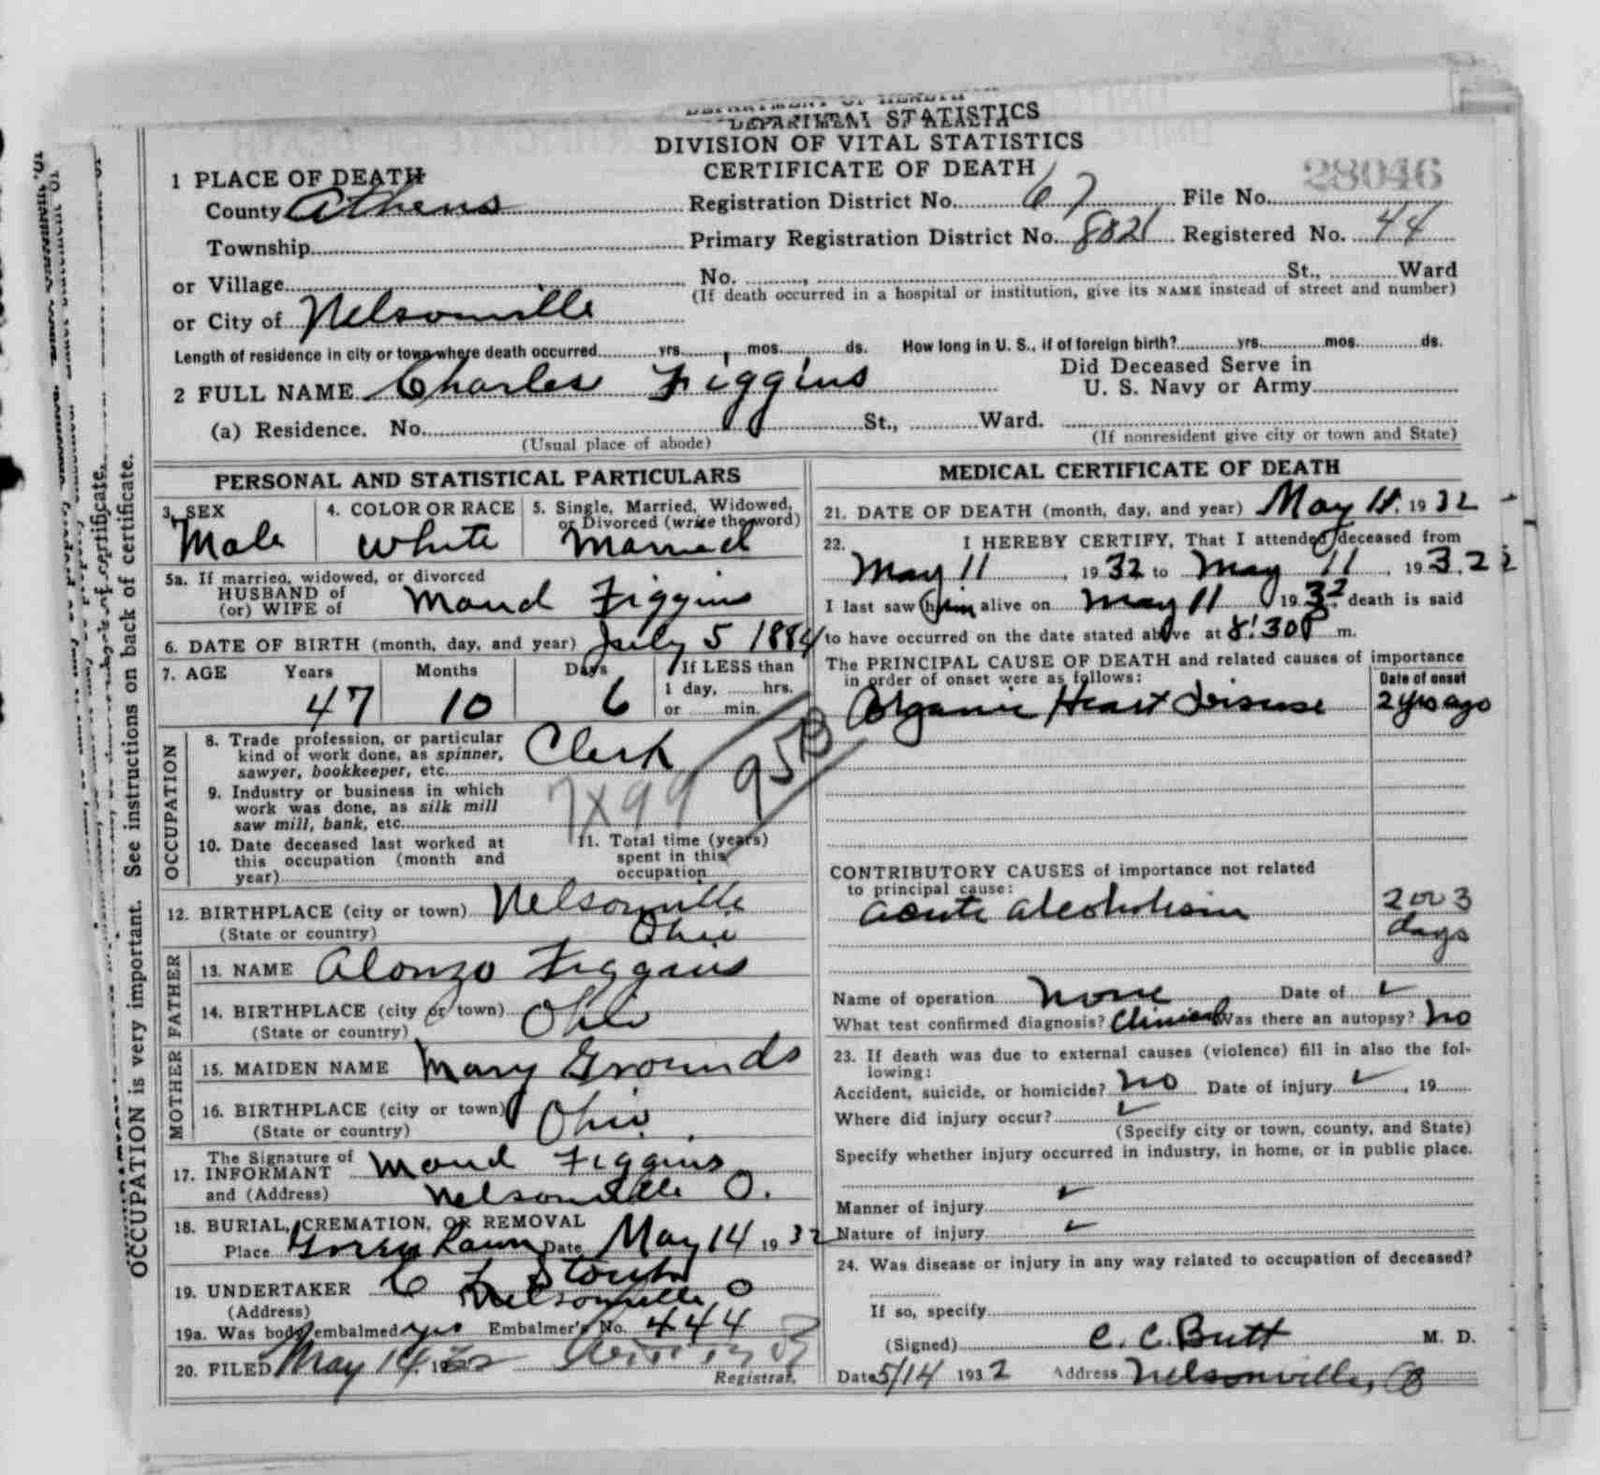 DEPARTMENT OF HEALTH
DEPARTMENT STATISTICS
DIVISION OF VITAL STATISTICS
CERTIFICATE OF DEATH
28046
1 PLACE OF DEATH
County Athens Registration District No. 67 File No.
Township Primary Registration District No. 8821 Registered No. 44
or Village No. , St., Ward
(If death occurred in a hospital or institution, give its NAME instead of street and number)
or City of Nelsonville
Length of residence in city or town where death occurred yrs. mos. ds. How long in U. S., if of foreign birth? yrs. mos. ds.
2 FULL NAME Charles Figgins Did Deceased Serve in U. S. Navy or Army
(a) Residence. No. St., Ward.
(Usual place of abode) (If nonresident give city or town and State)
PERSONAL AND STATISTICAL PARTICULARS
3. SEX Male
4. COLOR OR RACE White
5. Single, Married, Widowed, or Divorced (write the word) Married
5a. If married, widowed, or divorced
HUSBAND of
(or) WIFE of Maud Figgins
6. DATE OF BIRTH (month, day, and year) July 5 1884
7. AGE Years Months Days If LESS than
47 10 6 1 day, hrs.
or min.
OCCUPATION
8. Trade profession, or particular
kind of work done, as spinner,
sawyer, bookkeeper, etc. Clerk
95B
9. Industry or business in which
work was done, as silk mill
saw mill, bank, etc.
7X99
10. Date deceased last worked at
this occupation (month and
year)
11. Total time (years)
spent in this
occupation
12. BIRTHPLACE (city or town) Nelsonville
(State or country) Ohio
FATHER
13. NAME Alonzo Figgins
14. BIRTHPLACE (city or town)
(State or country) Ohio
MOTHER
15. MAIDEN NAME Mary Grounds
16. BIRTHPLACE (city or town)
(State or country) Ohio
17. The Signature of
INFORMANT Maud Figgins
and (Address) Nelsonville O.
18. BURIAL, CREMATION, OR REMOVAL
Place Lawn Date May 14 1932
19. UNDERTAKER
(Address) Nelsonville O
19a. Was body embalmed yes Embalmer's No. 444
20. FILED May 14, 1932
Registrar.
MEDICAL CERTIFICATE OF DEATH
21. DATE OF DEATH (month, day, and year) May 11, 1932
22. I HEREBY CERTIFY, That I attended deceased from
May 11, 1932 to May 11, 1932
I last saw him alive on May 11 1932 death is said
to have occurred on the date stated above at 8:30P m.
The PRINCIPAL CAUSE OF DEATH and related causes of importance
in order of onset were as follows: Date of onset
Organic Heart Disease 2 yrs ago
CONTRIBUTORY CAUSES of importance not related
to principal cause:
acute alcoholism 2 or 3
days
Name of operation None Date of ✓
What test confirmed diagnosis? Clinical Was there an autopsy? No
23. If death was due to external causes (violence) fill in also the fol-
lowing:
Accident, suicide, or homicide? No Date of injury ✓, 19
Where did injury occur? ✓
(Specify city or town, county, and State)
Specify whether injury occurred in industry, in home, or in public place.
Manner of injury ✓
Nature of injury ✓
24. Was disease or injury in any way related to occupation of deceased?
If so, specify
(Signed) C. C. Butt M. D.
Date 5/14 1932 Address Nelsonville, O
OCCUPATION is very important. See instructions on back of certificate.